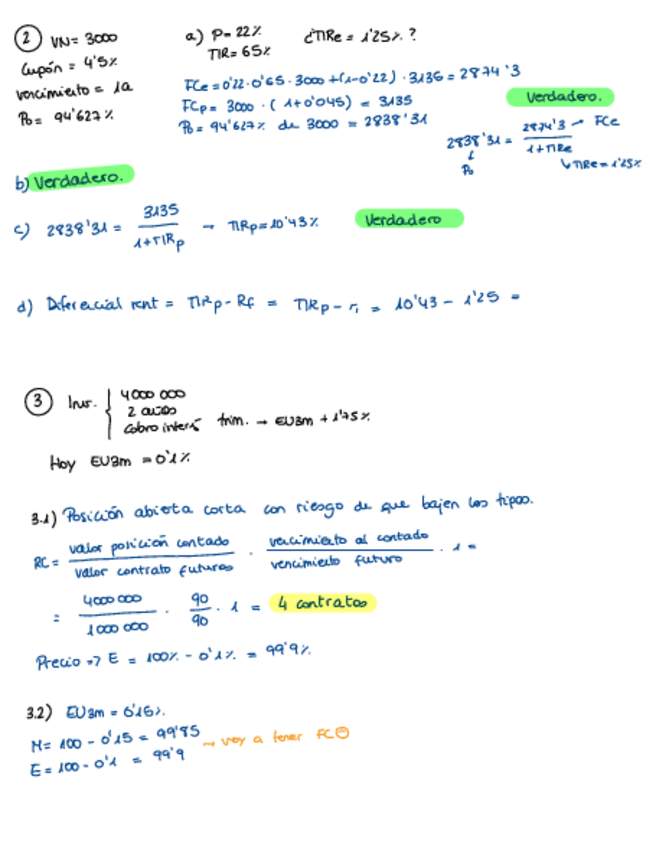 2 VN= 3000
Cupón = 4'5%
vencimiento = 1a
P0 = 94'627%
a) P= 22%
TIR= 65%
¿TIRe = 1'25%?
FCe = 0'22·0'65·3000 + (1-0'22)·3135 = 2874'3
FCp = 3000·(1+0'045) = 3135
P0 = 94'627% de 3000 = 2838'31
Verdadero.
2838'31 = 2874'3 → FCe / 1+TIRe
↓ P0
↳ TIRe = 1'25%
b) Verdadero.
c) 2838'31 = 3135 / 1+TIRp → TIRp = 10'43%
Verdadero
d) Diferencial rent = TIRp - Rf = TIRp - r1 = 10'43 - 1'25 =
3 Inv. { 4000 000
2 años
cobro interés trim. → EU3m + 1'75%
Hoy EU3m = 0'1%
3.1) Posición abierta corta con riesgo de que bajen los tipos.
RC = valor posición contado / valor contrato futuros · vencimiento al contado / vencimiento futuro · 1 =
= 4000 000 / 1 000 000 · 90 / 90 · 1 = 4 contratos
Precio => E = 100% - 0'1% = 99'9%
3.2) EU3m = 0'15%.
M = 100 - 0'15 = 99'85
→ voy a tener FC⊖
E = 100 - 0'1 = 99'9